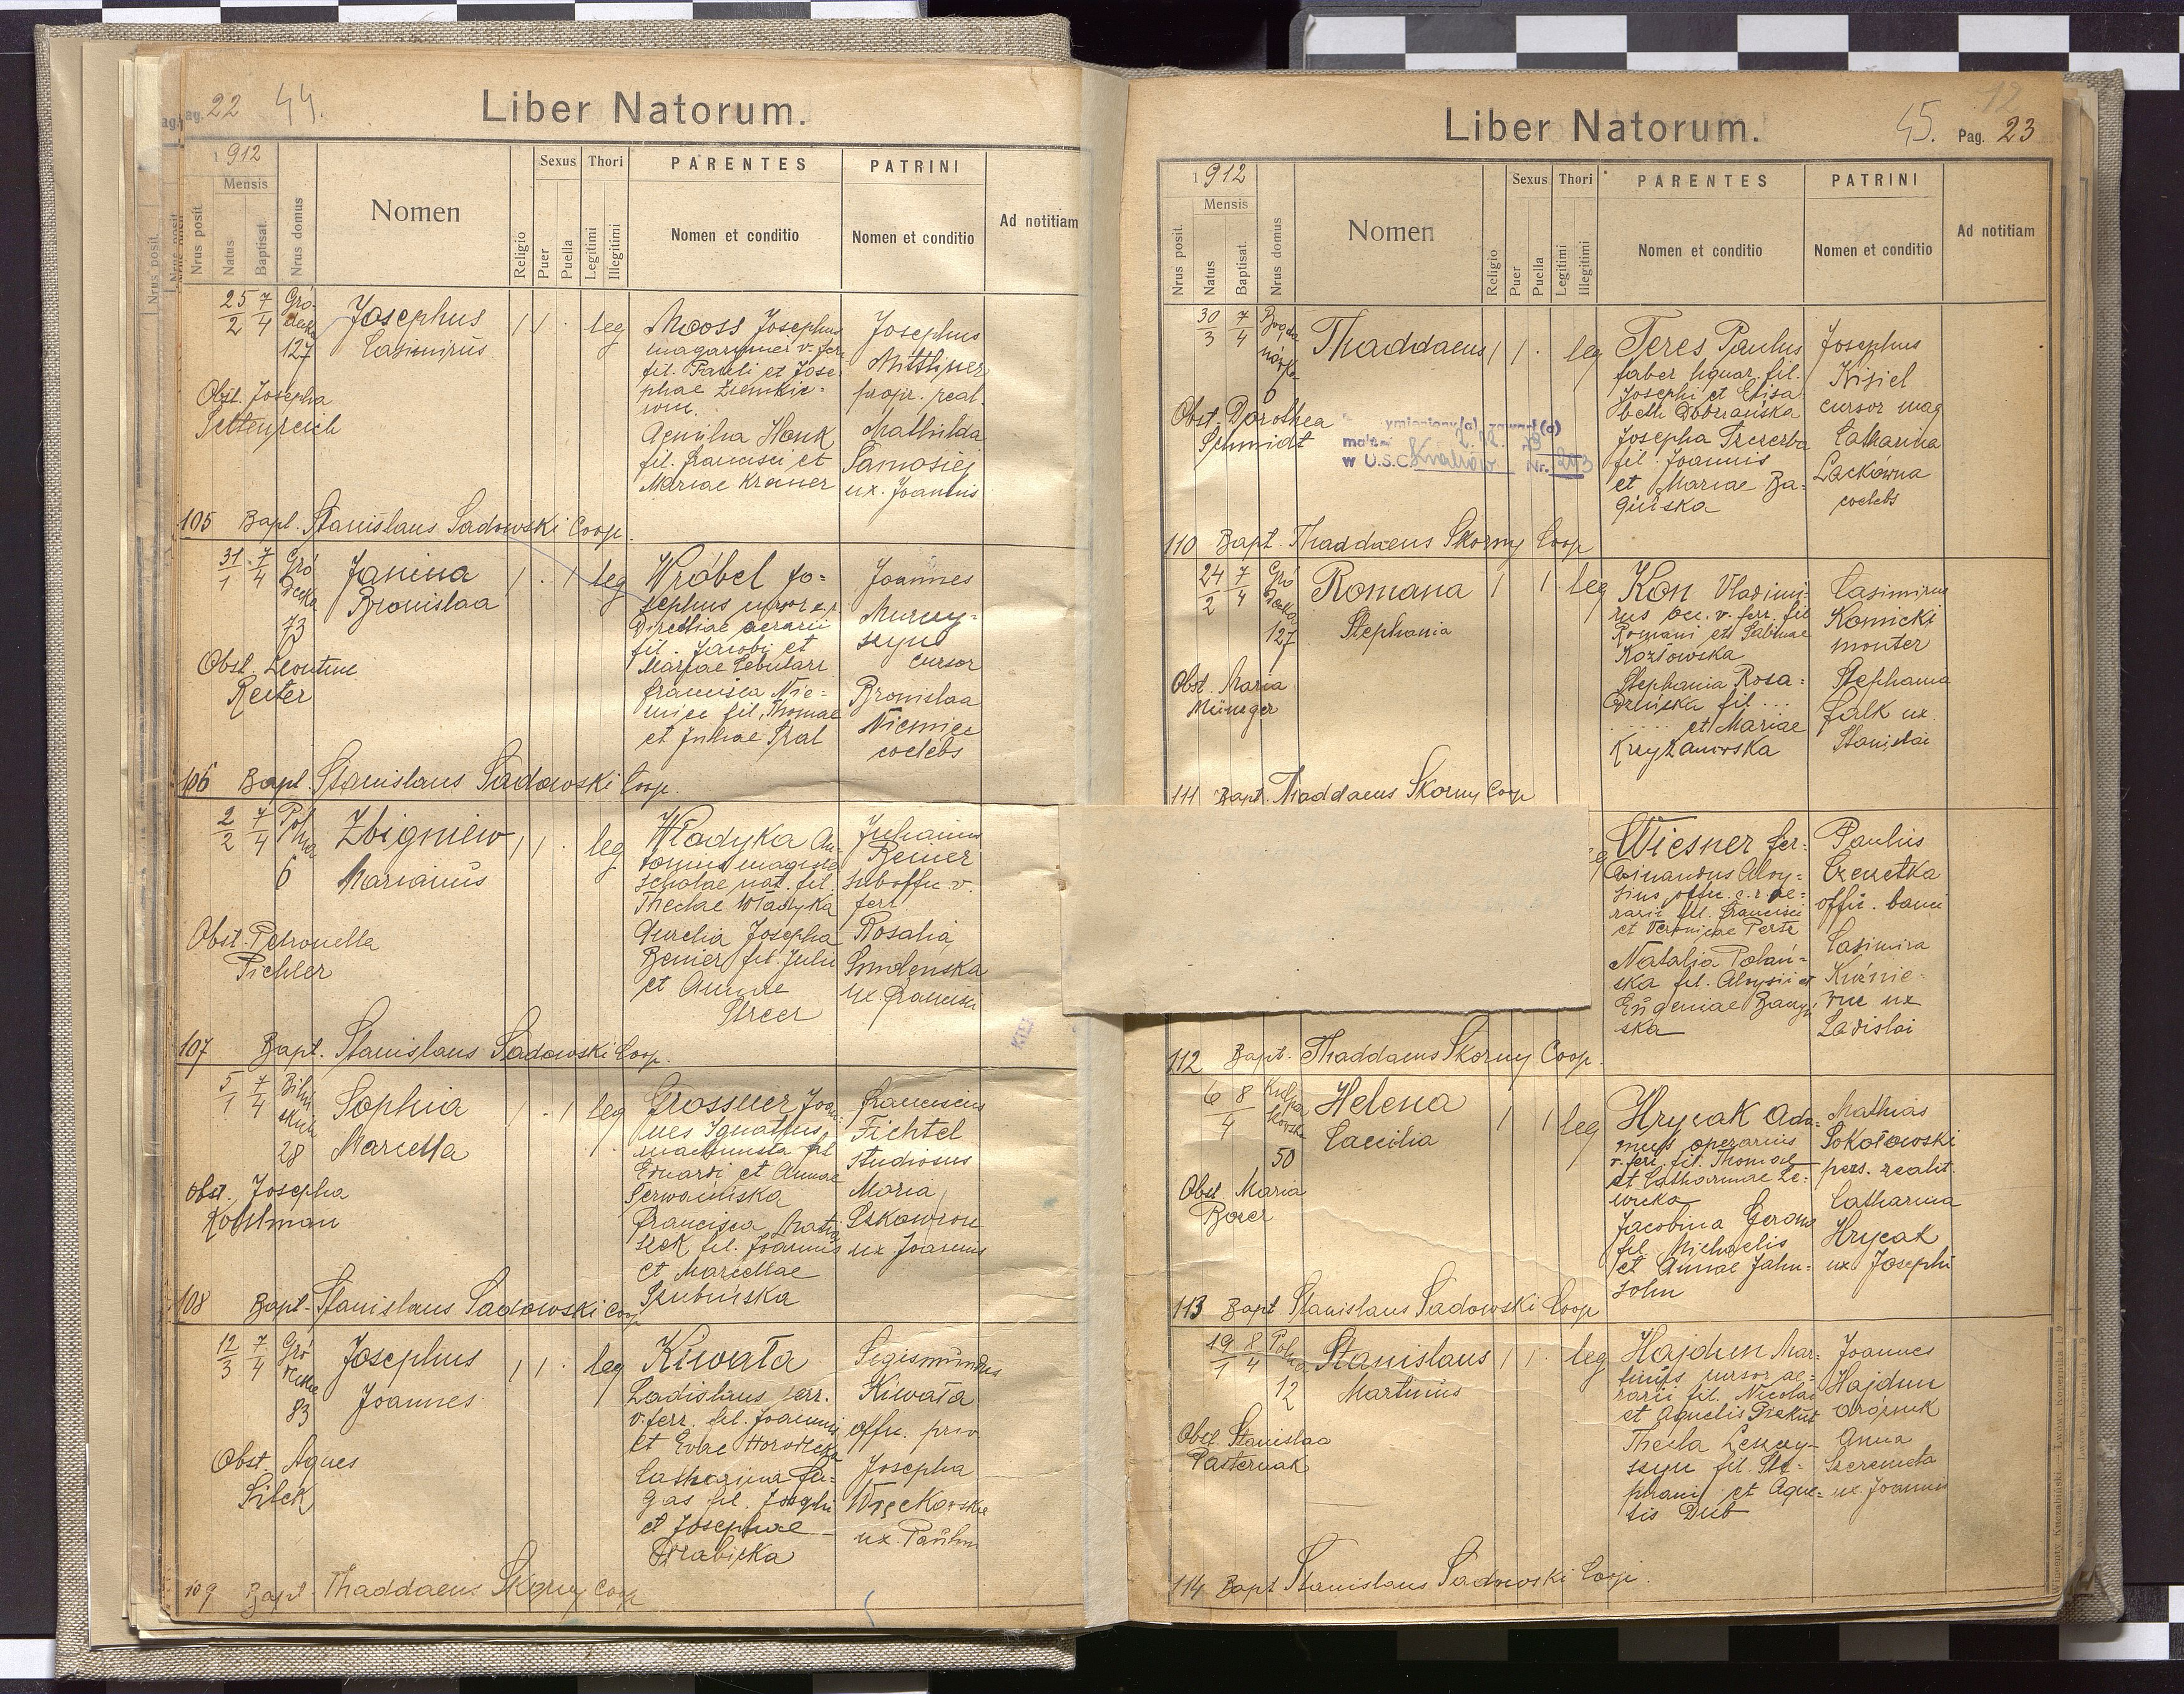 Pag. 22 44.
Liber Natorum.
1912
Mensis
Nrus posit.
Natus
Baptisat.
Nrus domus
Nomen
Religio
Sexus
Puer
Puella
Thori
Legitimi
Illegitimi
PARENTES
Nomen et conditio
PATRINI
Nomen et conditio
Ad notitiam
25/2 7/4
127
Josephus
Casimirus
1 1 . leg
Mooss Josephus
fil. Pauli et Jose-
phae
fil. Francisci et
Mariae Kramer
Josephus
Mittlner
propr. real.
Mathilda
ux. Joannis
Obst. Josepha
Settenreich
105 Bapt. Stanislaus Sadowski Coop.
31/1 7/4
Gró
decka
73
Janina
Bronislaa
1 . 1 leg
Wróbel Jo-
sephus cursor c.r
Directiae aerarii
fil. Jacobi et
Mariae Cebularz
Francisca Nie-
miec fil. Thomae
et Juliae
Joannes
Murcy-
szyn
cursor
Bronislaa
Niemiec
coelebs
Obst. Leontine
Reiter
106 Bapt. Stanislaus Sadowski Coop.
2/2 7/4
Pol
na
6
Zbigniew
Marianus
1 1 . leg
Władyka An-
tonius magister
scholae nat. fil.
Theclae Władyka
Aurelia Josepha
Renier fil. Julii
et Annae
Streer
Julianus
Renier
suboffic. v.
ferr.
Rosalia
Smolenska
ux. Francisci
Obst. Petronella
Pichler
107 Bapt. Stanislaus Sadowski Coop.
5/1 7/4
28
Sophia
Marcella
1 . 1 leg
Grossner Joan-
nes Ignatius
machinista fil.
Eduardi et Annae
Francisca
fil. Joannis
et Marcellae
Franciscus
Fichtel
studiosus
Maria
Skowron
ux. Joannis
Obst. Josepha
108 Bapt. Stanislaus Sadowski Coop
12/3 7/4
Gró
83
Josephus
Joannes
1 1 . leg
Kiwała
Ladislaus serv.
v. ferr. fil. Joannis
et Evae Horodecka
Catharina
fil. Josephi
et Josephae
Sigismundus
Kiwała
offic. priv
Josepha
Więckowska
ux. Paulini
Obst. Agnes
Silek
109 Bapt. Thaddaeus Skorny Coop
Liber Natorum.
45. Pag. 23
12
1912
Mensis
Nrus posit.
Natus
Baptisat.
Nrus domus
Nomen
Religio
Sexus
Puer
Puella
Thori
Legitimi
Illegitimi
PARENTES
Nomen et conditio
PATRINI
Nomen et conditio
Ad notitiam
30/3 7/4
6
Thaddaeus
1 1 . leg
Teres Paulus
faber lignar. fil.
Josephi et Elisa-
beth Dobrańska
Josepha
fil. Joannis
et Mariae Ba-
Josephus
Kisiel
cursor mag
Catharina
Lackówna
coelebs
Obst. Dorothea
Schmidt
w U.S.C. Kraków Nr.
110 Bapt. Thaddaeus Skorny Coop
24/2 7/4
Gró
decka
127
Romana
Stephania
1 1 leg
Kon Vladimi-
rus occ. v. ferr. fil
Romani et Sabinae
Kozłowska
Stephania Rosa-
fil ...
..... et Mariae
Krzyżanowska
Casimirus
Konicki
monter
Stephania
Falk ux.
Stanislai
Obst. Maria
Münzger
111 Bapt. Thaddaeus Skorny Coop
Wiesner Fer-
dinandus Aloy-
sius offic. c. r. ae-
rarii fil. Francisci
et Veronicae
Natalia Polań-
ska fil. Aloysii et
Eugeniae
ska
Paulus
Czeczetka
offic. banci
Casimira
Kuźnie-
ux
Ladislai
112 Bapt. Thaddaeus Skorny Coop.
6 8/4
50
Helena
Caecilia
1 1 leg
Hrycak Ada-
mus operarius
v. ferr. fil. Thomae
et Catharinae Le-
wicka
Jacobina
fil. Michaelis
et Annae Jahn-
sohn
Mathias
Sokołowski
poss. realit.
Catharina
Hrycak
ux Josephi
Obst. Maria
113 Bapt Stanislaus Sadowski Coop
19/1 8/4
Polna
12
Stanislaus
Martinus
1 1 . leg
Hajdun Mar-
tinus cursor ae-
rarii fil. Nicolai
et Agnetis
Thecla Leszczy-
szyn fil. Ste-
phani et Agne-
tis Dub
Joannes
Hajdun
Anna
Szeremeta
ux. Joannis
Obst. Stanislaa
Pasternak
114 Bapt Stanislaus Sadowski Coop.